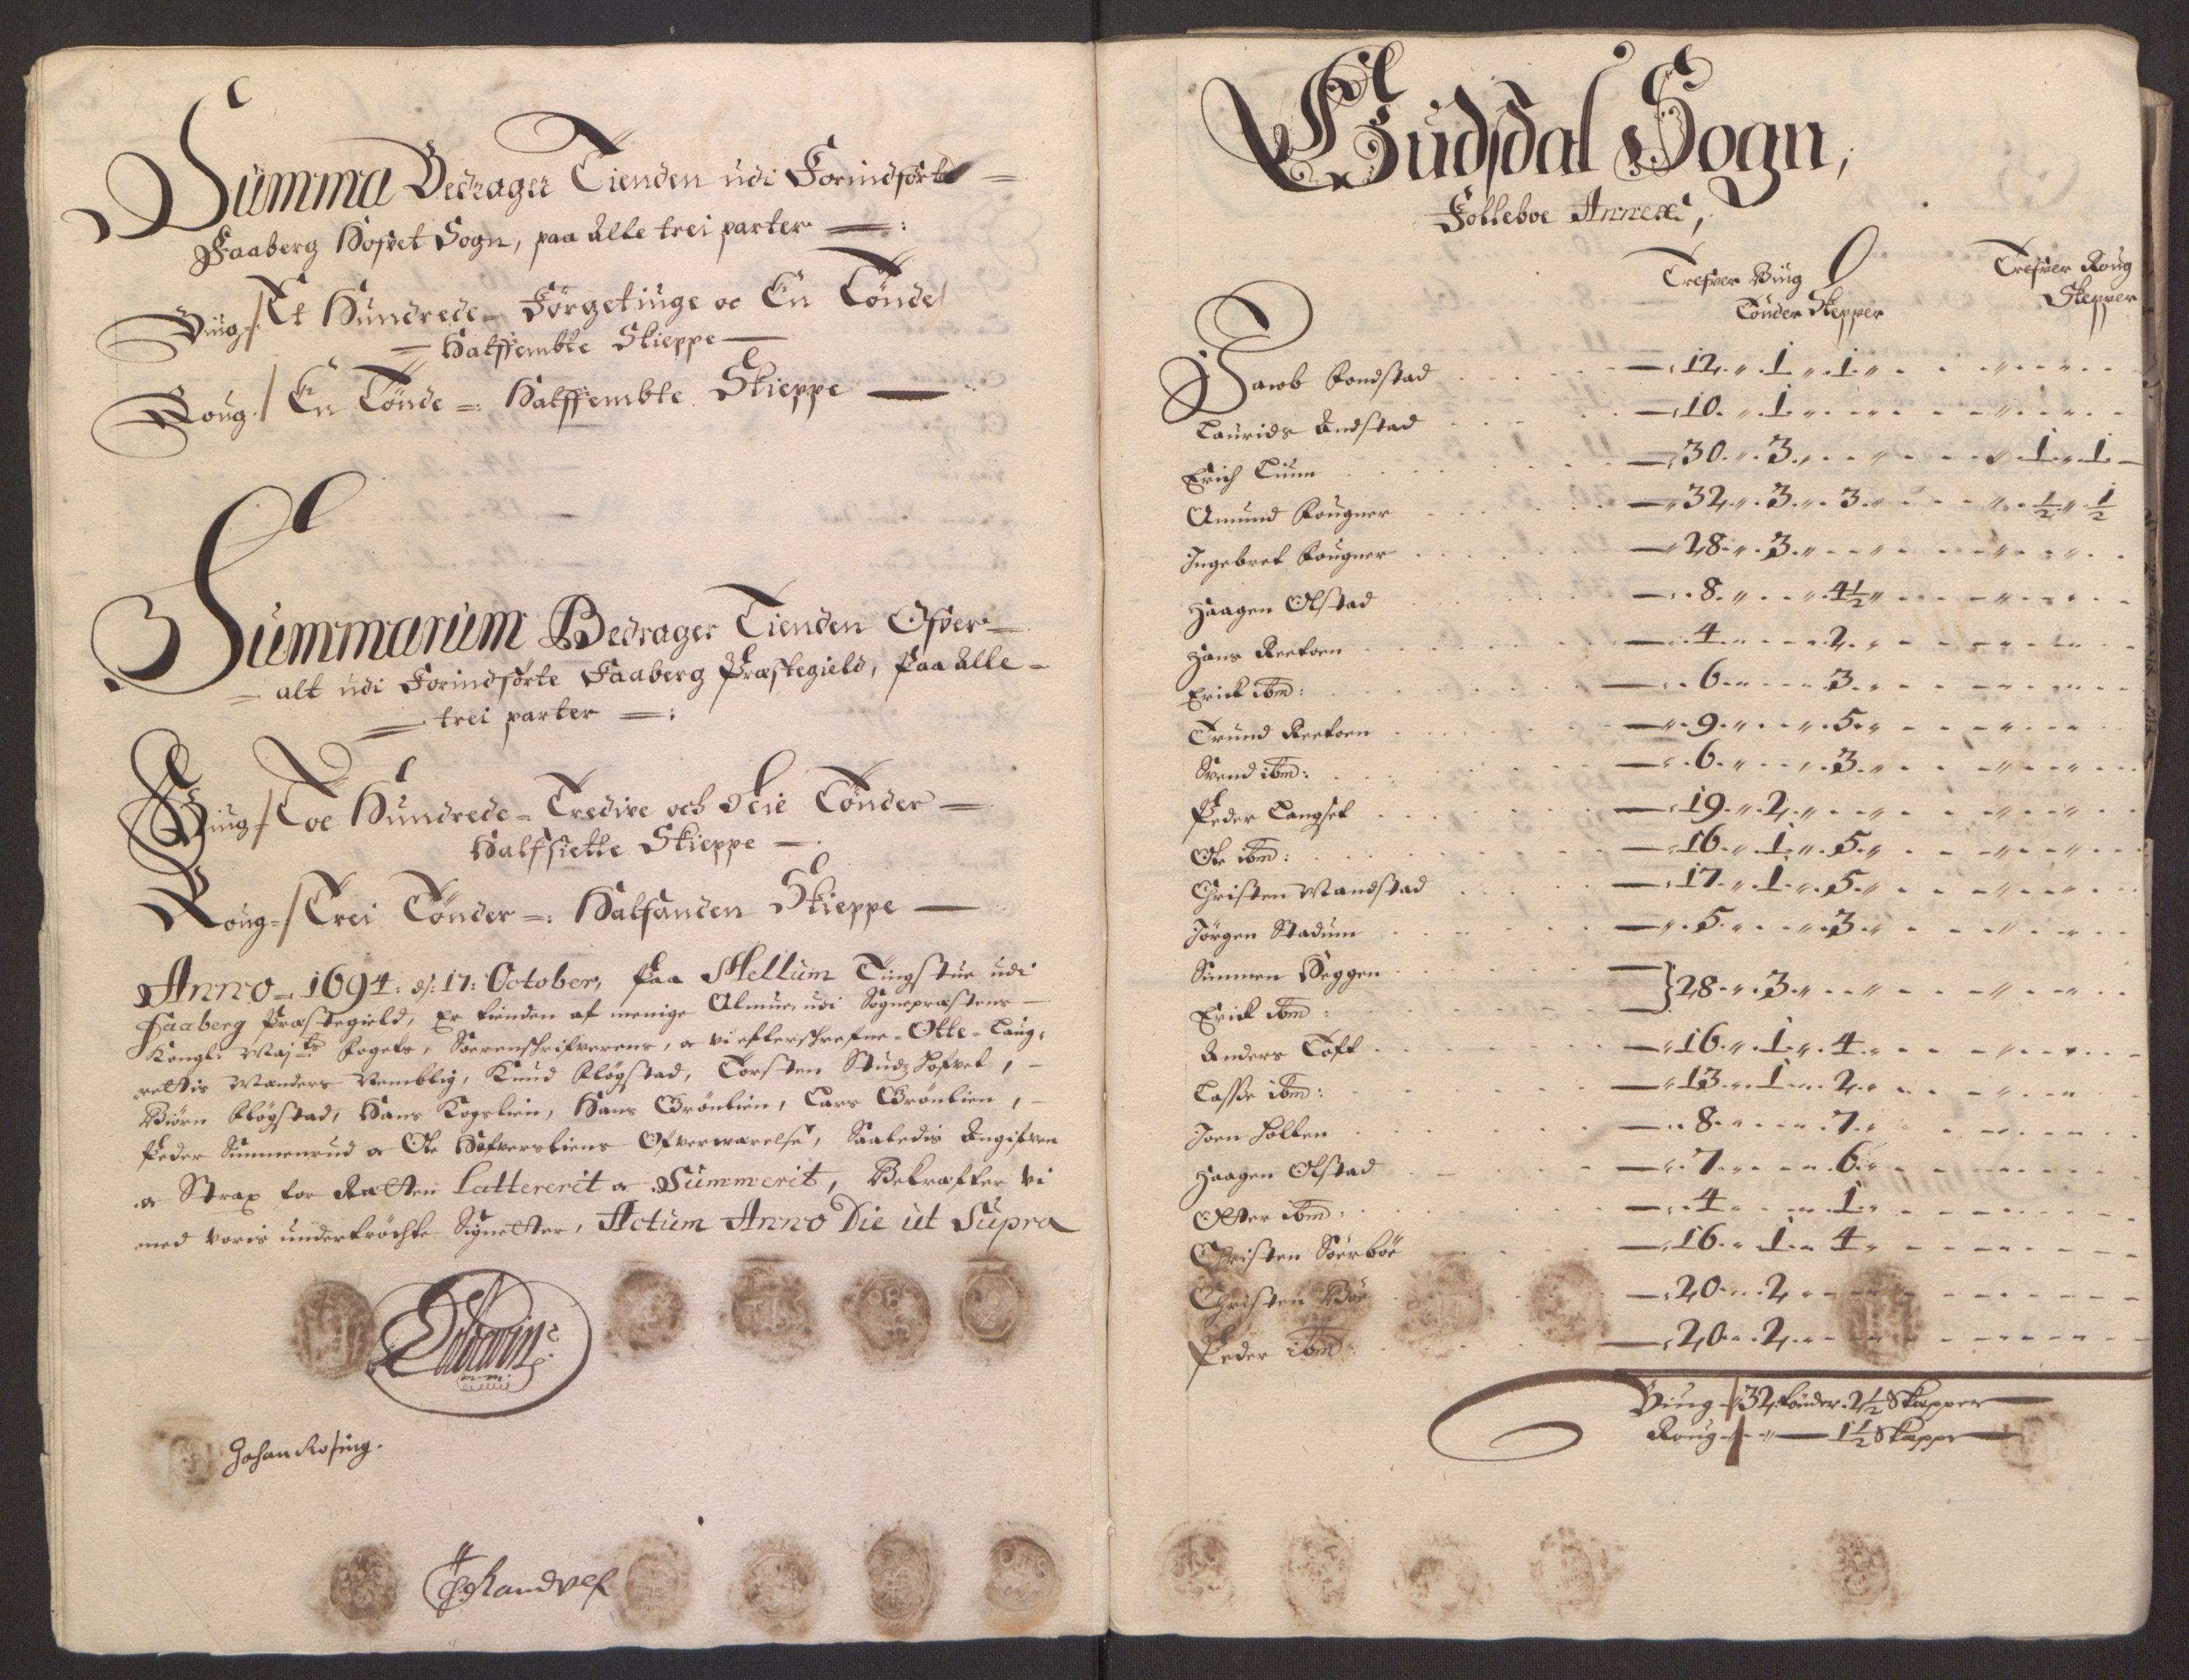 Summa Bedrager Tienden udi Forindførte
Faaberg Hofvet Sogn, paa Alle trei parter
Biug / Et Hundrede Førgetiuge oc En Tønde
Halffembte Skieppe
Roug / En Tønde Halffembte Skieppe
Summarum Bedrager Tienden Ofver
alt udi Forindførte Faaberg Præstegield, paa Alle
trei parter
Biug / Toe Hundrede Tredive och Trei Tønder
Halfsiette Skieppe
Roug / Trei Tønder Halfanden Skieppe
Anno 1694: d: 17: October, paa Mellum Tingstue udi
Faaberg Præstegield, er tienden af menige Almue, udi Sognepræstens
Kongl: Maj:ts fogets, Sorenschrifverens, oc vi efterschrefne Otte Laug
rettis Mænders Nemblig, Knud Kløgstad, Torsten Hofvet,
Biørn Kløgstad, Hans Kogslien, Hans Grønlien, Lars Grønlien,
Peder Simmenrud oc Ole Ofverwærelse, Saaledis Angifven
oc Strax for Retten Lattererit oc Summerit, Bekræfter vi
med voris undertrøchte Signetter, Actum Anno Die ut Supra
TLS
Johan Rosing.
Gudsdal Sogn,
Folleboe Annexi,
Trefver Biug Trefver Roug
Tønder Skepper Skepper
Jacob Kondstad 12 1 1
Laurids Andstad 10 1
Erich Lium 30 3 1 1
Amund Kougner 32 3 3 ½ ½
Ingebret Kougner 28 3
Haagen Olstad 8 4½
Hans Reetoen 4 2
Erick ibm: 6 3
Trund Reetoen 9 5
Svend ibm: 6 3
Peder Langset 19 2
Ole ibm: 16 1 5
Christen Mandstad 17 1 5
Jørgen Stadum 5 3
Simmen Heggen
Erick ibm: } 28 3
Anders Toft 16 1 4
Lasse ibm: 13 1 2
Joen Hollen 8 7
Haagen Olstad 7 6
ibm: 4 1
Christen Sørboe 16 1 4
Christen Bøe 20 2
Peder ibm: 20 2
Biug 32 tønder 2½ Skæpper
Roug 1½ Skæppe